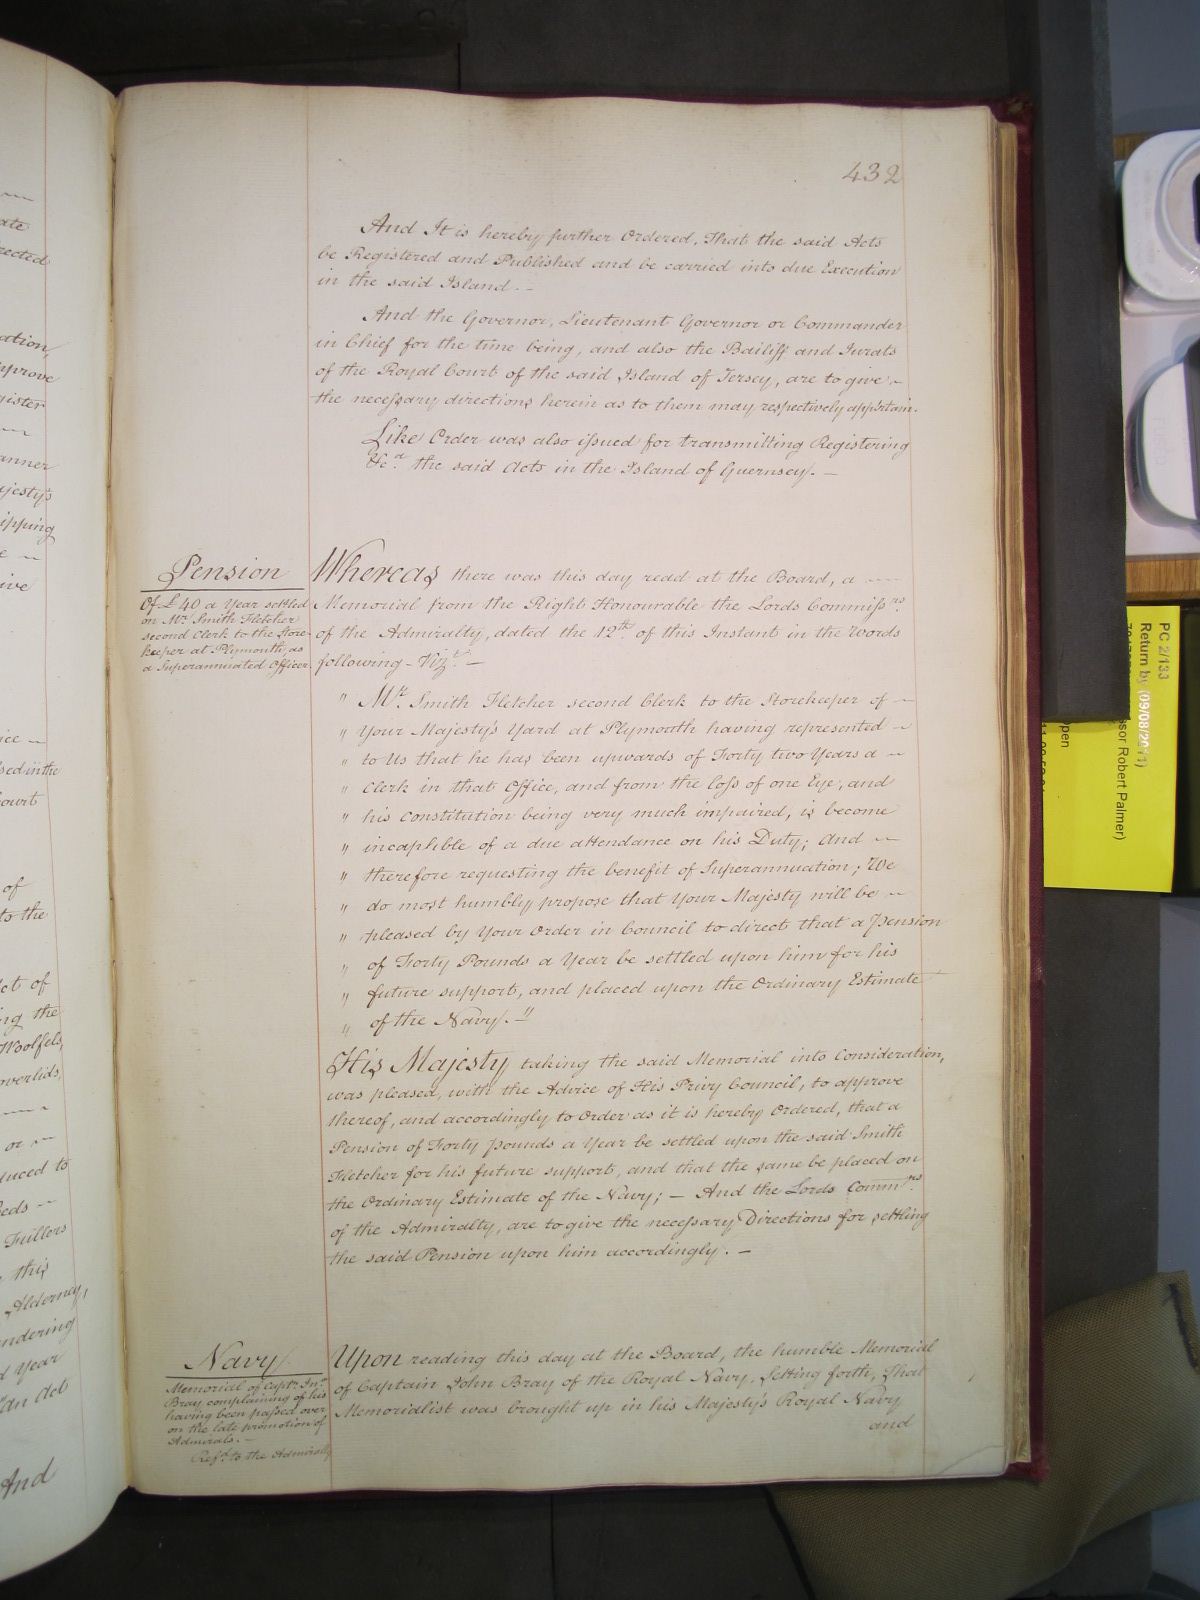 432
And It is hereby further Ordered, That the said Acts
be Registered and Published and be carried into due Execution
in the said Island. -
And the Governor, Lieutenant Governor or Commander
in Chief for the time being, and also the Bailiff and Jurats
of the Royal Court of the said Island of Jersey, are to give -
the necessary directions herein as to them may respectively appertain.
Like Order was also issued for transmitting Registering
&c.a the said Acts in the Island of Guernsey. -
Pension
Of £40 a Year settled
on Mr. Smith Fletcher
second Clerk to the Store-
keeper at Plymouth, as
a Superannuated Officer.
Whereas there was this day read at the Board, a
Memorial from the Right Honourable the Lords Commissrs.
of the Admiralty, dated the 12th. of this Instant in the Words
following - Vizt. -
" Mr. Smith Fletcher second Clerk to the Storekeeper of -
" Your Majesty's Yard at Plymouth having represented -
" to Us that he has been upwards of Forty two Years a -
" Clerk in that Office, and from the Loss of one Eye, and
" his Constitution being very much impaired, is become
" incapable of a due attendance on his Duty; And -
" therefore requesting the benefit of Superannuation; We
" do most humbly propose that Your Majesty will be -
" pleased by Your Order in Council to direct that a Pension
" of Forty Pounds a Year be settled upon him for his
" future support, and placed upon the Ordinary Estimate
" of the Navy. - "
His Majesty taking the said Memorial into Consideration,
was pleased, with the Advice of His Privy Council, to approve
thereof, and accordingly to Order as it is hereby Ordered, that a
Pension of Forty Pounds a Year be settled upon the said Smith
Fletcher for his future support, and that the same be placed on
the Ordinary Estimate of the Navy; - And the Lords Commrs.
of the Admiralty, are to give the necessary Directions for settling
the said Pension upon him accordingly. -
Navy
Memorial of Captn. Jno.
Bray complaining of his
having been passed over
on the late promotion of
Admirals. -
Refd. to the Admiralty
Upon reading this day at the Board, the humble Memorial
of Captain John Bray of the Royal Navy, Setting forth, That
Memorialist was brought up in his Majesty's Royal Navy
and
ate
rected
ation,
pprove
gister
anner
ajesty's
ipping
ive
ice -
sed in the
Court
of
to the
ct of
ng the
Woolfels,
overlids,
or -
duced to
eds -
Fullers
this
Alderney,
ndering
d Year
An Act
And
PC 2/133
Return by (09/08/2011)
ssor Robert Palmer)
pen